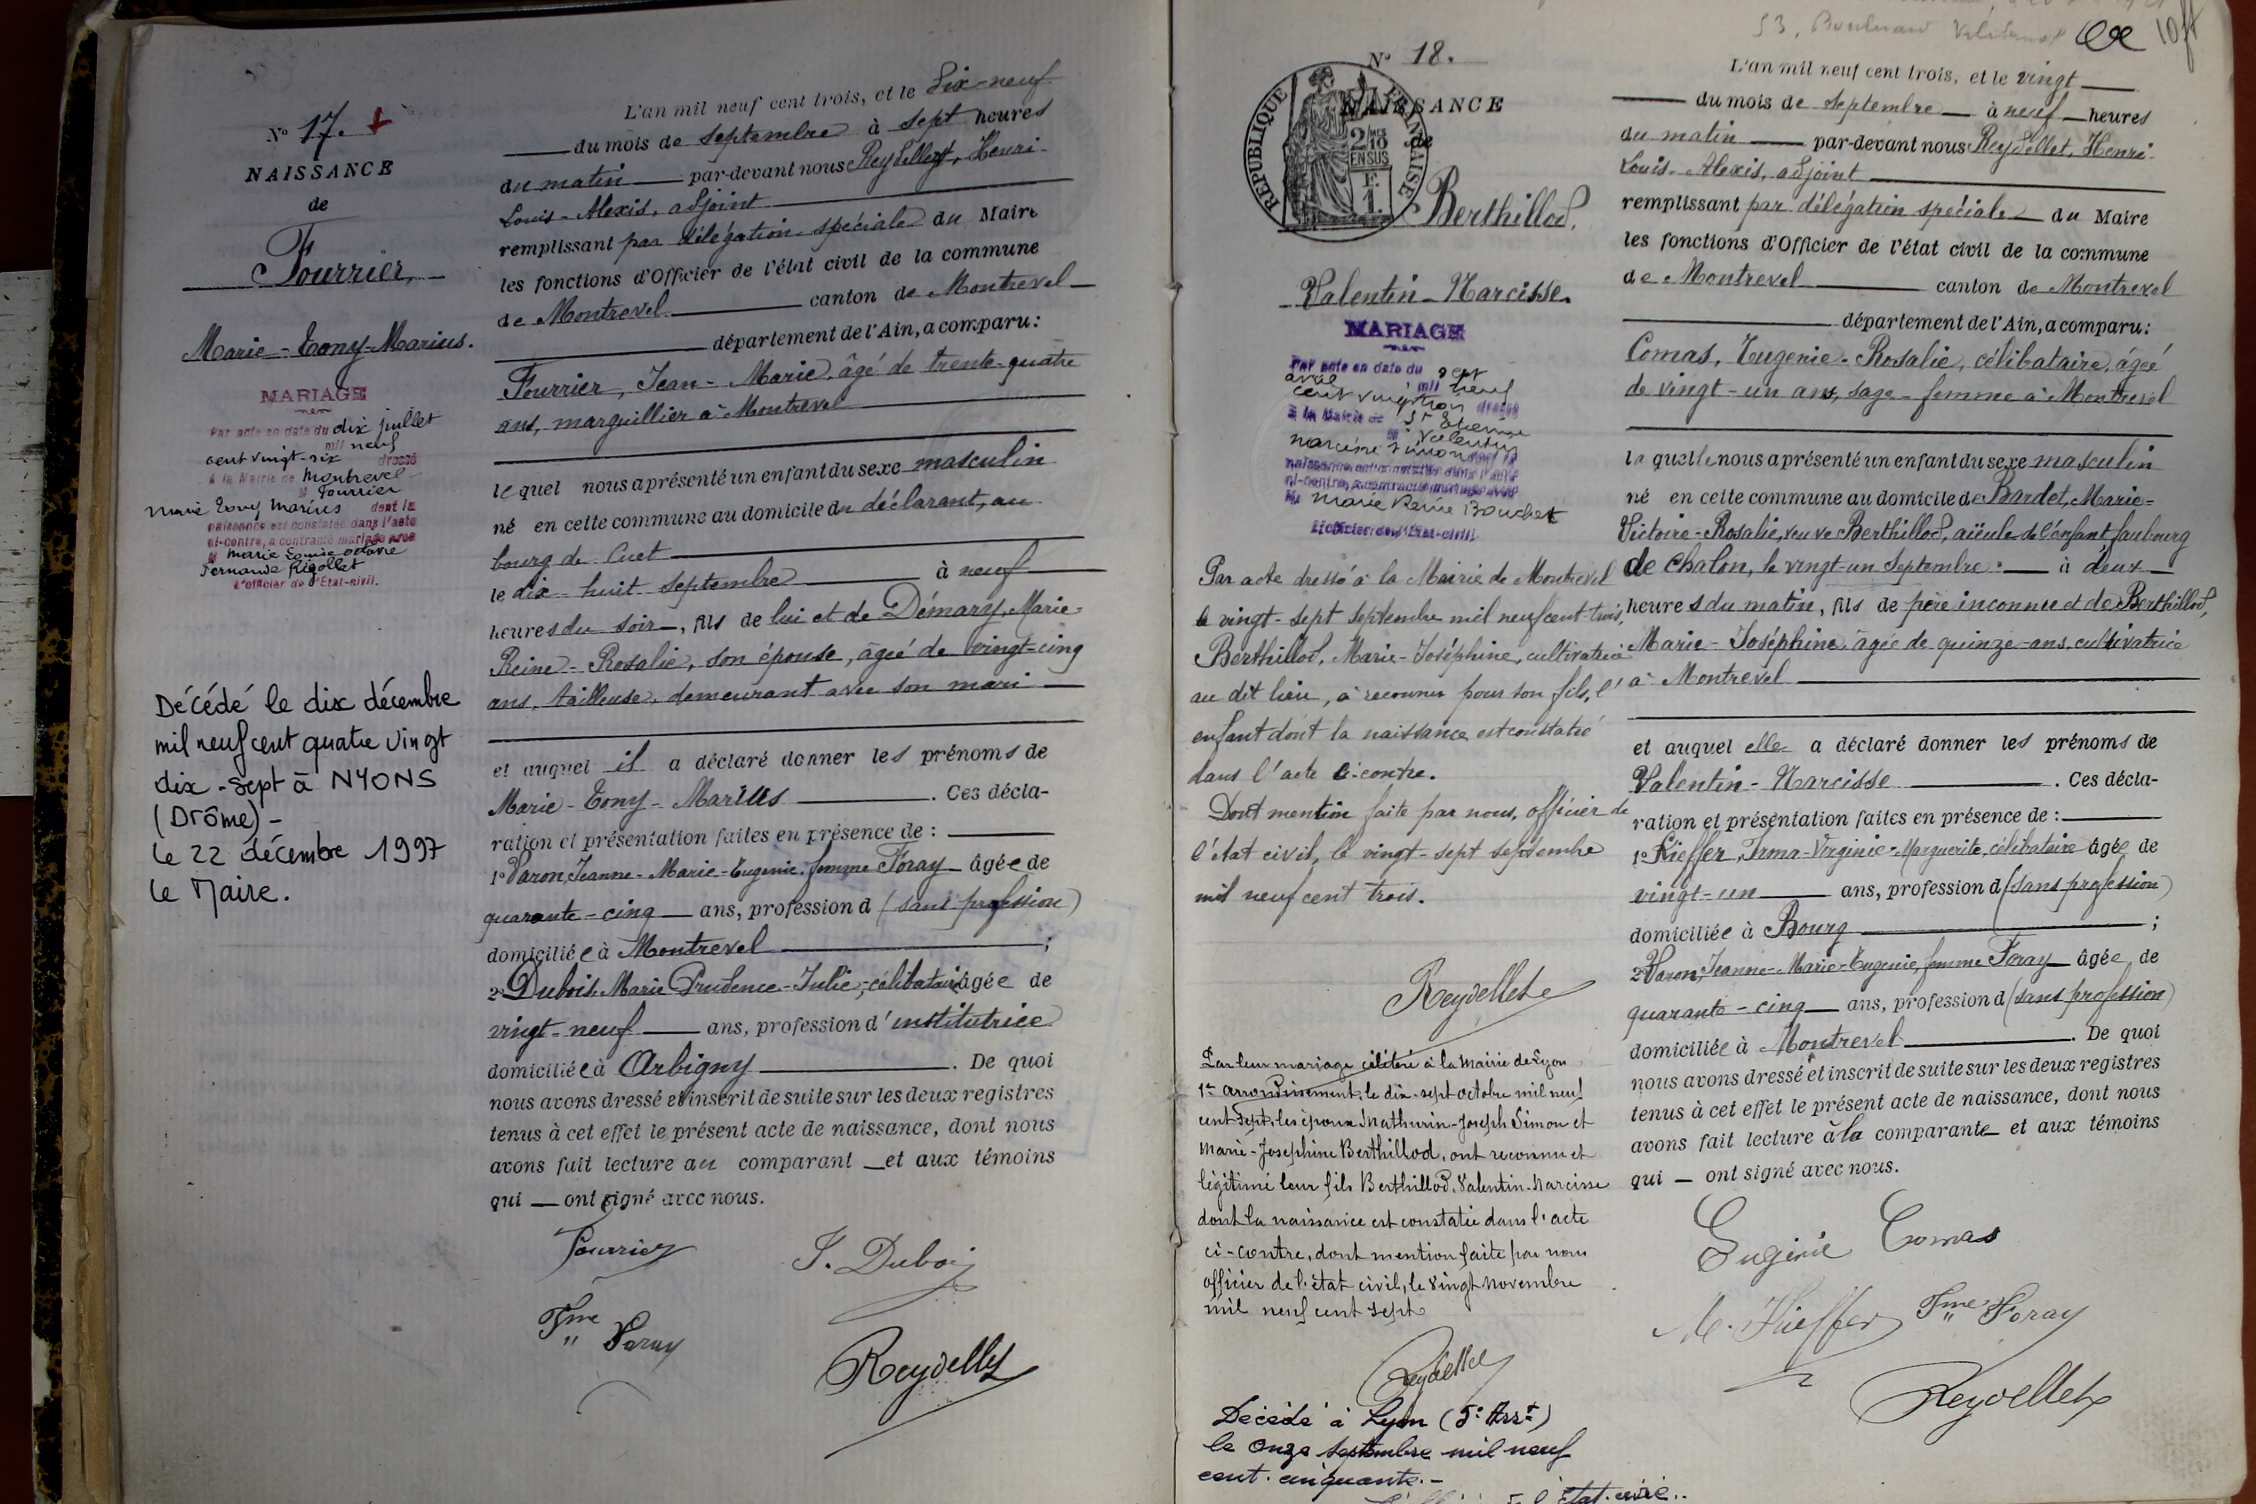 N° 17. +
NAISSANCE
de
Fourrier,
Marie-Tony-Marius.
MARIAGE
Par acte en date du dix juillet
mil neuf
cent vingt-six dressé
à la Mairie de Montrevel
M Fourrier
Marie Tony Marius dont la
naissance est constatée dans l'acte
ci-contre, a contracté mariage avec
M Marie Louise Octavie
Fernande Rigollet
L'officier de l'Etat-civil.
Décédé le dix décembre
mil neuf cent quatre vingt
dix-sept à NYONS
(Drôme)-
le 22 décembre 1997
le Maire.
L'an mil neuf cent trois, et le dix-neuf
du mois de septembre à sept heures
du matin par-devant nous Reydellet, Henri-
Louis-Alexis, adjoint
remplissant par délégation spéciale du Maire
les fonctions d'Officier de l'état civil de la commune
de Montrevel canton de Montrevel
département de l'Ain, a comparu:
Fourrier, Jean-Marie, âgé de trente-quatre
ans, marguillier à Montrevel
lequel nous a présenté un enfant du sexe masculin
né en cette commune au domicile du déclarant, au
bourg de Cuet
le dix-huit septembre à neuf
heures du soir, fils de lui et de Démary, Marie-
Reine-Rosalie, son épouse, âgée de vingt-cinq
ans, tailleuse, demeurant avec son mari
et auquel il a déclaré donner les prénoms de
Marie-Tony-Marius. Ces décla-
ration et présentation faites en présence de:
1° Varon, Jeanne-Marie-Eugenie, femme Foray âgée de
quarante-cinq ans, profession d (sans profession)
domiciliée à Montrevel;
2° Dubois, Marie Prudence-Julie, célibataire âgée de
vingt-neuf ans, profession d'institutrice
domiciliée à Arbigny. De quoi
nous avons dressé et inscrit de suite sur les deux registres
tenus à cet effet le présent acte de naissance, dont nous
avons fait lecture au comparant et aux témoins
qui ont signé avec nous.
Fourrier J. Dubois
Fme Foray
Reydellet
N° 18.
NAISSANCE
de
REPUBLIQUE FRANÇAISE
2/10 EN SUS
1 F.
Berthillod,
Valentin-Narcisse.
MARIAGE
Par acte en date du sept
avril mil neuf
cent vingt trois dressé
à la Mairie de St Etienne
M Valentin
Narcisse Simon dont la
naissance est constatée dans l'acte
ci-contre, a contracté mariage avec
M Marie Reine Bouchet
L'officier de l'Etat-civil
Par acte dressé à la Mairie de Montrevel
le vingt-sept septembre mil neuf cent trois,
Berthillod, Marie-Joséphine, cultivatrice
au dit lieu, a reconnu pour son fils, l'
enfant dont la naissance est constatée
dans l'acte ci-contre.
Dont mention faite par nous, officier de
l'état civil, le vingt-sept septembre
mil neuf cent trois.
Reydellet
Par leur mariage célébré à la Mairie de Lyon
1er arrondissement, le dix-sept octobre mil neuf
cent sept, les époux Mathurin-Joseph Simon et
Marie-Josephine Berthillod, ont reconnu et
légitimé leur fils Berthillod, Valentin-Narcisse
dont la naissance est constatée dans l'acte
ci-contre, dont mention faite par nous
officier de l'état civil, le vingt novembre
mil neuf cent sept
Reydellet
Décédé à Lyon (5e Arrt)
le onze septembre mil neuf
cent cinquante.-
l'état-civil.
53, Boulevard
L'an mil neuf cent trois, et le vingt
du mois de septembre à neuf heures
du matin par-devant nous Reydellet, Henri-
Louis-Alexis, adjoint
remplissant par délégation spéciale du Maire
les fonctions d'Officier de l'état civil de la commune
de Montrevel canton de Montrevel
département de l'Ain, a comparu:
Comas, Eugenie-Rosalie, célibataire, âgée
de vingt-un ans, sage-femme à Montrevel
laquelle nous a présenté un enfant du sexe masculin
né en cette commune au domicile de Bardet, Marie-
Victoire-Rosalie, veuve Berthillod, aïeule de l'enfant faubourg
de Chalon, le vingt-un septembre à deux
heures du matin, fils de père inconnu et de Berthillod,
Marie-Joséphine, âgée de quinze ans, cultivatrice
à Montrevel
et auquel elle a déclaré donner les prénoms de
Valentin-Narcisse. Ces décla-
ration et présentation faites en présence de:
1° Kieffer, Irma-Virginie-Marguerite, célibataire âgée de
vingt-un ans, profession d (sans profession)
domiciliée à Bourg;
2° Varon, Jeanne-Marie-Eugenie, femme Foray âgée de
quarante-cinq ans, profession d (sans profession)
domiciliée à Montrevel. De quoi
nous avons dressé et inscrit de suite sur les deux registres
tenus à cet effet le présent acte de naissance, dont nous
avons fait lecture à la comparante et aux témoins
qui ont signé avec nous.
Eugénie Comas
M. Kieffer Fme Foray
Reydellet